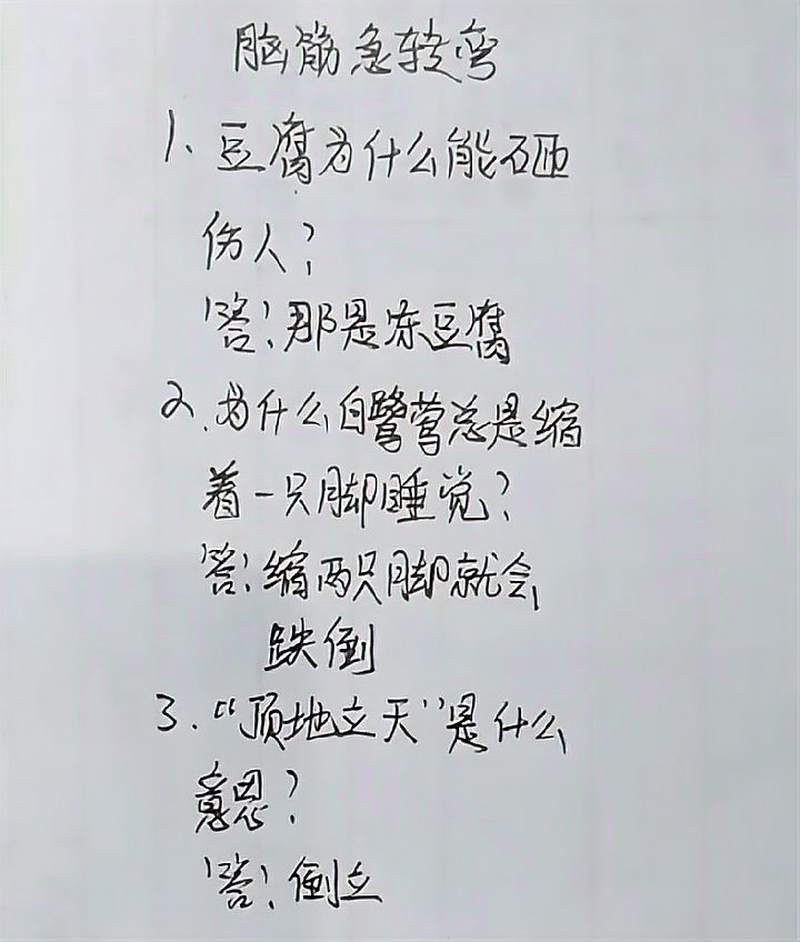 脑筋急转弯
1、豆腐为什么能砸
伤人?
答:那是冻豆腐
2.为什么白鹭莺总是缩
着一只脚睡觉?
答:缩两只脚就会
跌倒
3."顶地立天"是什么
意思?
答:倒立